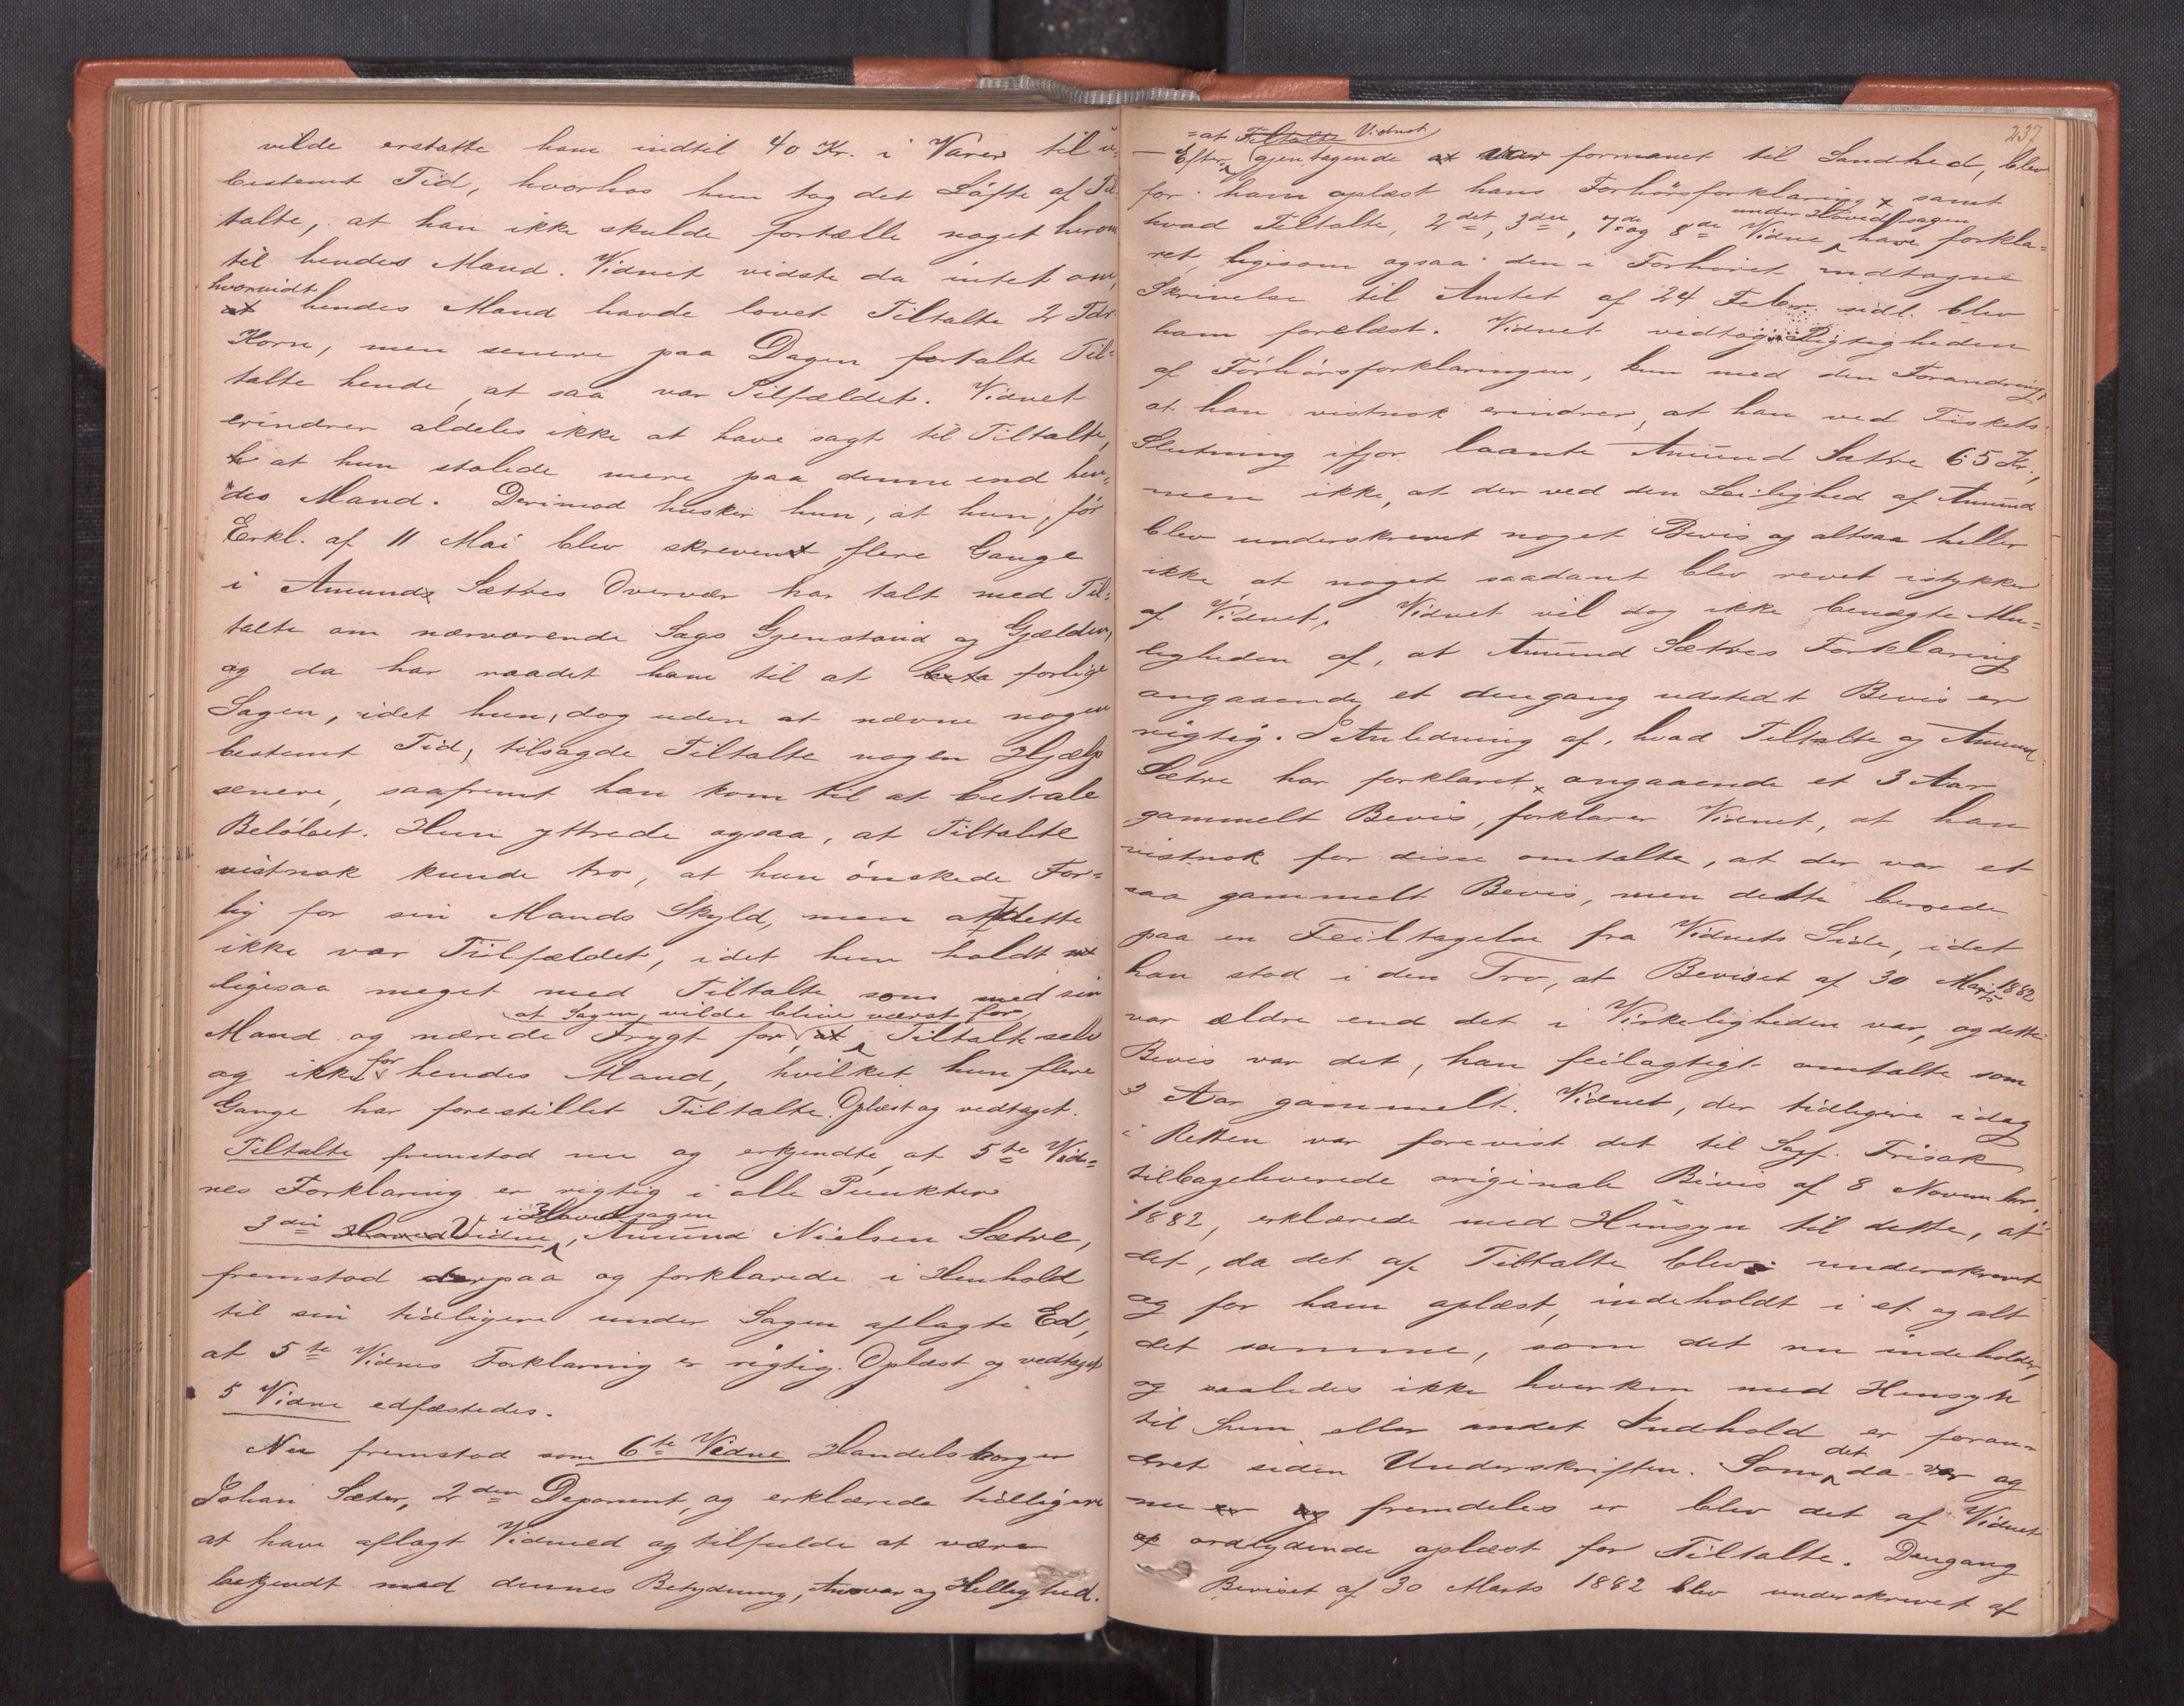 vilde erstatte ham indtil 40 Kr. i Varer til u-
bestemt Tid, hvorhos hun tog det Löfte af Til-
talte, at han ikke skulde fortælle noget herom
til hendes Mand. Vidnet vidste da intet om,
hvorvidt
at hendes Mand havde lovet Tiltalte 2 Tdr
Korn, men senere paa Dagen fortalte Til=
talte hende, at saa var Tilfældet. Vidnet
erindrer aldeles ikke at have sagt til Tiltalte,
at hun stolede mere paa denne end hen-
des Mand. Derimod husker hun, at hun, för
Erkl. af 11 Mai blev skrevet, flere Gange
i Amund Sættes Overvær har talt med Til=
talte om nærværende Sags Gjenstand og Gjælden,
og da har raadet ham til at forlige
Sagen, idet hun, dog uden at nævne nogen
bestemt Tid, tilsagde Tiltalte nogen Hjælp
senere, saafremt han kom til at betale
Belöbet. Hun yttrede ogsaa, at Tiltalte
vistnok kunde tro, at hun önskede For=
lig for sin Mands Skyld, men at dette
ikke var Tilfældet, idet hun holdt
ligesaa meget med Tiltalte som med sin
at Sagen vilde blive værst for
Mand og nærede Frygt for, at Tiltalte selv
for
og ikke hendes Mand, hvilket hun flere
Gange har forestillet Tiltalte. Oplæst og vedtaget.
Tiltalte fremstod nu og erkjendte, at 5te Vid=
nes Forklaring er rigtig i alle Punkter
i Hovedsagen
3die Hoved Vidne, Amund Nielsen Sætre,
fremstod derpaa og forklarede i Henhold
til sin tidligere under Sagen aflagte Ed,
at 5te Vidnes Forklaring er rigtig. Oplæst og vedtaget
5 Vidne edfæstedes.
Nu fremstod som 6te Vidne Handelsborger
Johan Sæter, 2den Deponent, og erklærede tidligere
at have aflagt Vidneed og tilfulde at være
bekjendt med dennes Betydning, Ansvar og Hellighed.
237
=at Tiltalte Vidnet
— Efter gjentagende at var formanet til Sandhed, blev
for ham oplæst hans Forhörsforklaring samt
under Hovedsagen
hvad Tiltalte, 2det, 3die, 7de og 8de Vidne have forkla=
ret, ligesom ogsaa den i Forhöret indtagne
Skrivelse til Amtet af 24 Febr. sidl. blev
ham forelæst. Vidnet vedtog Rigtigheden
af Forhörsforklaringen, kun med den Forandring,
at han vistnok erindrer, at han ved Fiskets
Slutning ifjor laante Amund Sætre 65 Kr.,
men ikke, at der ved den Leilighed af Amund
blev underskrevet noget Bevis og altsaa heller
ikke, at noget saadant blev revet istykker
af Vidnet. Vidnet vil dog ikke benægte Mu=
ligheden af, at Amund Sættes Forklaring
angaaende et dengang udstedt Bevis er
rigtig. I Anledning af, hvad Tiltalte og Amund
Sætre har forklaret angaaende et 3 Aar
gammelt Bevis, forklarer Vidnet, at han
vistnok for disse omtalte, at der var et
saa gammelt Bevis, men dette beroede
paa en Feiltagelse fra Vidnets Side, idet
han stod i den Tro, at Beviset af 30 Marts 1882
var ældre end det i Virkeligheden var, og dette
Bevis var det, han feilagtigt omtalte som
3 Aar gammelt. Vidnet, der tidligere idag
i Retten var forevist det til Sagf. Frisak
tilbageleverede originale Bevis af 8 November
1882, erklærede med Hensyn til dette, at
det, da det af Tiltalte blev underskrevet
og for ham oplæst, indeholdt i et og alt
det samme, som det nu indeholder,
og saaledes ikke hverken med Hensyn
til Sum eller andet Indhold er foran=
det
dret siden Underskriften. Som da var og
nu er og fremdeles er blev det af Vidnet
op ordlydende oplæst for Tiltalte. Dengang
Beviset af 30 Marts 1882 blev underskrevet af